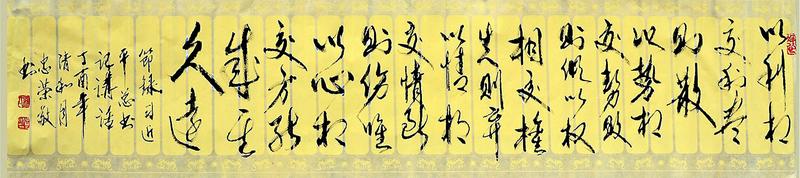 以利相
交利尽
则散
以势相
交势败
则倾以权
相交權
失则弃
以情相
交情断
则伤惟
以心相
交方能
成其
久遠
節録习近
平总书
记講話
丁酉年
清和月
忠荣敬
书